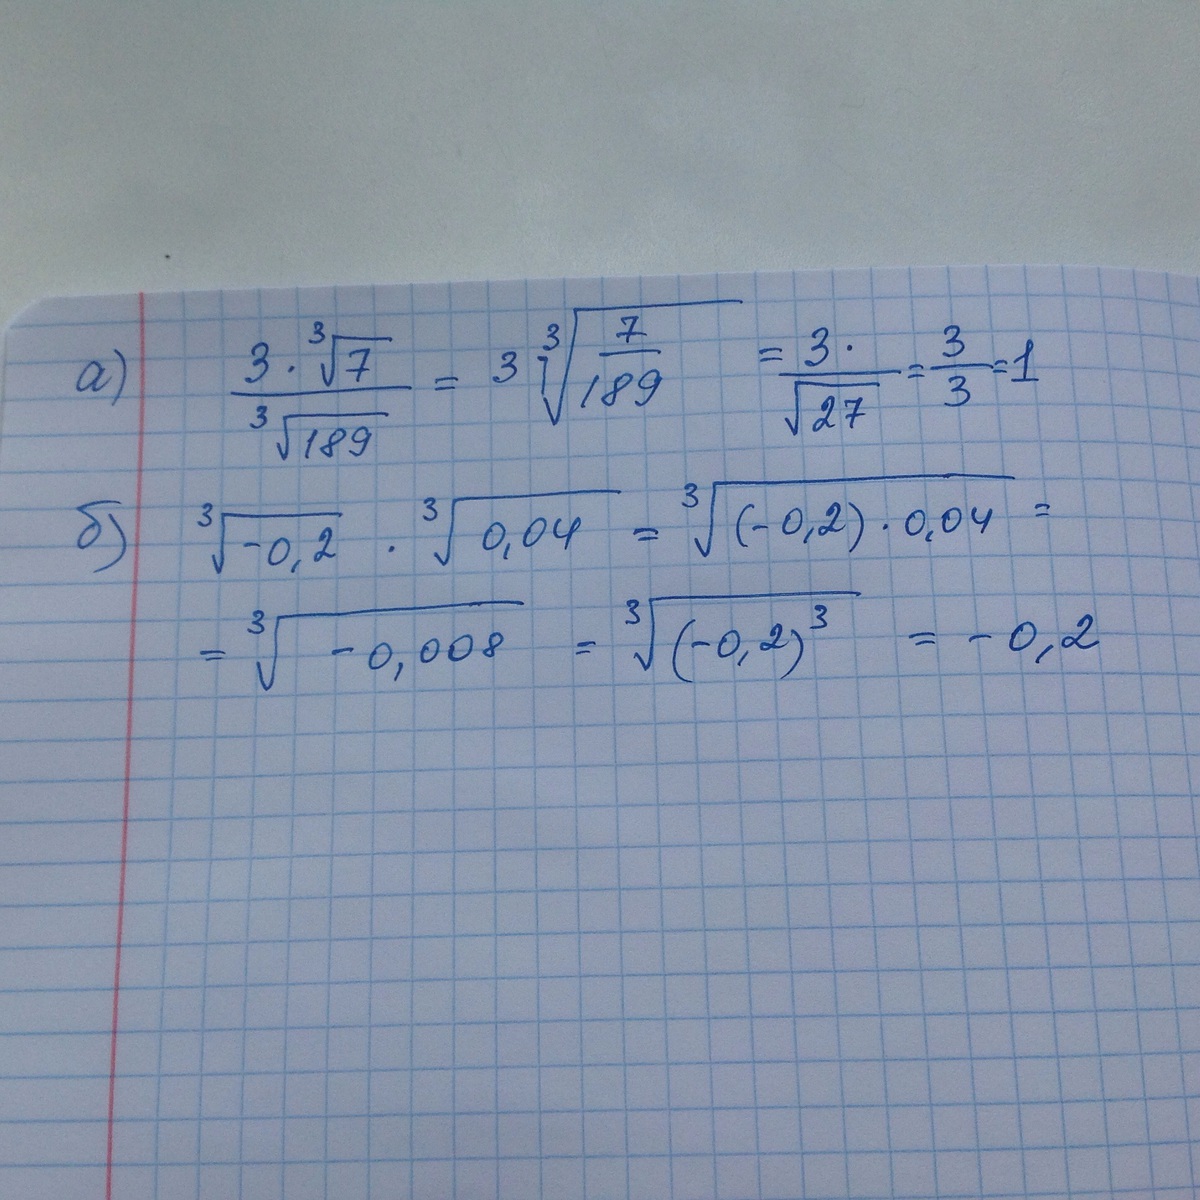 а) 3 · ∛7 / ∛189 = 3 ∛(7/189) = 3 · / √27 = 3/3 = 1
б) ∛-0,2 · ∛0,04 = ∛(-0,2) · 0,04 =
= ∛-0,008 = ∛(-0,2)³ = -0,2